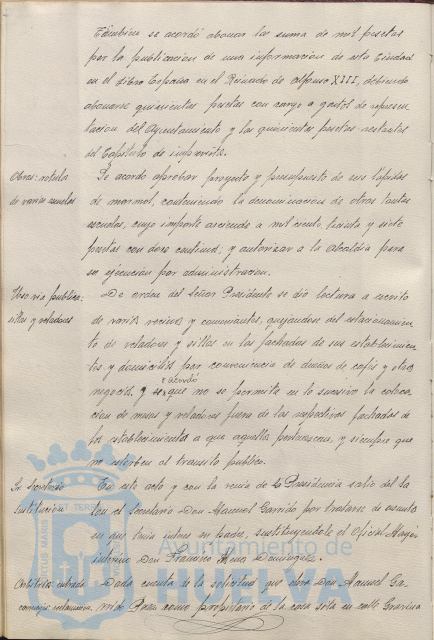 También se acordó abonar la suma de mil pesetas
por la publicacion de una informacion de esta Ciudad
en el libro España en el Reinado de Alfonso XIII, debiendo
abonarse quinientas pesetas con cargo a gastos de represen
tacion del Ayuntamiento y las quinientas pesetas restantes
del Capitulo de imprevistos.
Obras: rotulos
de varias escuelas
Se acordo aprobar proyecto y presupuesto de seis lápidas
de marmol, conteniendo la denominacion de otras tantas
escuelas, cuyo importe asciende a mil ciento treinta y siete
pesetas con doce centimos; y autorizar a la Alcaldia para
su ejecucion por administracion.
Uso via publica:
sillas y veladores
De orden del Señor Presidente se dio lectura a escrito
de varios vecinos y comerciantes, quejandose del estacionamien
to de veladores y sillas en las fachadas de sus establecimien
tos y domicilios por conveniencia de dueños de cafés y otros
negocios, y se acordó que no se permita en lo sucesivo la coloca
cion de mesas y veladores fuera de las respectivas fachadas de
los establecimientos a que aquellas pertenezcan, y siempre que
no estorben al transito publico.
Sustitucion
En este acto y con la venia de la Presidencia salio del Sa
lon el Secretario Don Manuel Garrido por tratarse de asunto
en que tenia interes su padre, sustituyendole el Oficial Mayor
interino Don Francisco Domínguez.
Dada cuenta de la solicitud que eleva Don Manuel Ga
rrido Perez como propietario de la casa sita en calle Gravina
Ayuntamiento de
HUELVA